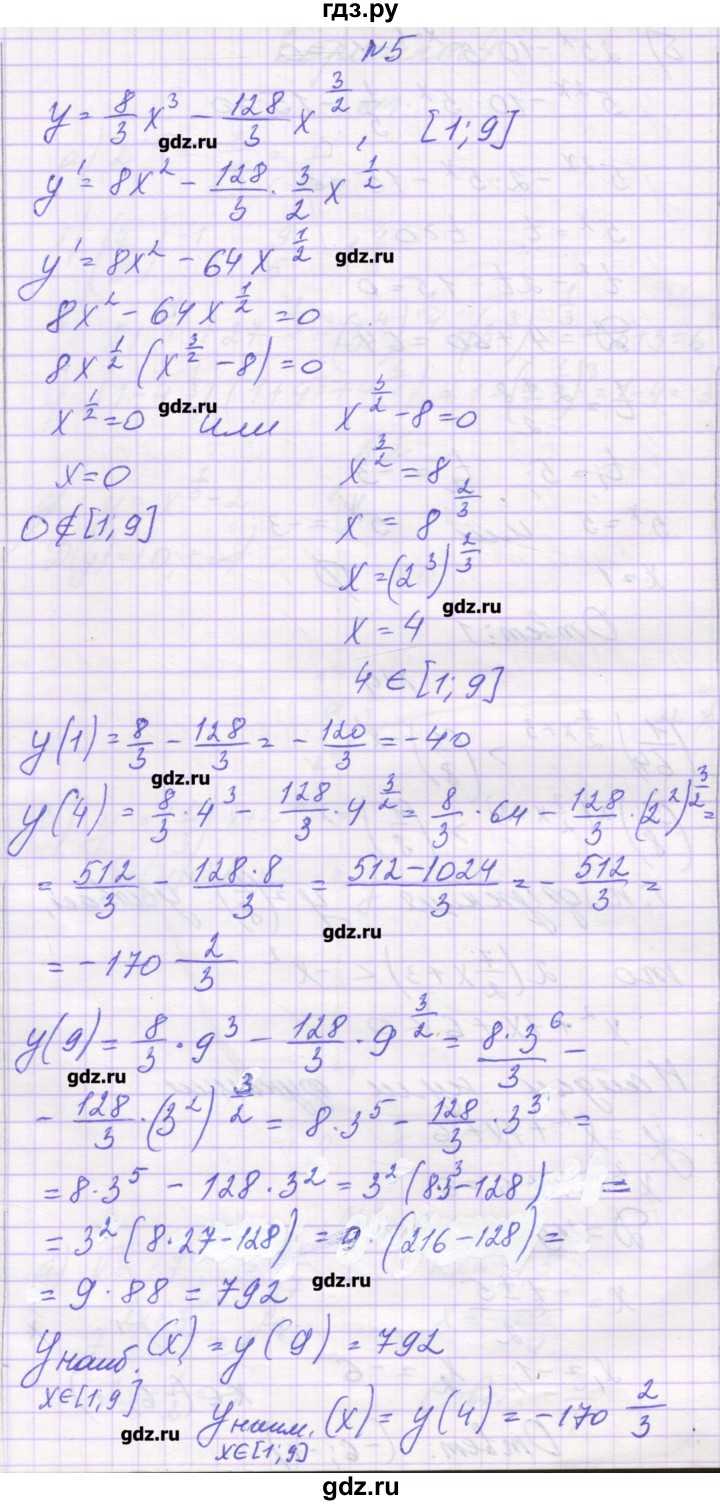 гдз.ру
№5
y = 8/3 x^3 − 128/3 x^(3/2), [1; 9]
gdz.ru
y' = 8x^2 − 128/3 · 3/2 x^(1/2)
y' = 8x^2 − 64x^(1/2)
gdz.ru
8x^2 − 64x^(1/2) = 0
8x^(1/2) (x^(3/2) − 8) = 0
gdz.ru
x^(1/2) = 0 или x^(3/2) − 8 = 0
x = 0 x^(3/2) = 8
0 ∉ [1; 9] x = 8^(2/3)
x = (2^3)^(2/3)
gdz.ru
x = 4
4 ∈ [1; 9]
y(1) = 8/3 − 128/3 = − 120/3 = −40
gdz.ru
y(4) = 8/3 · 4^3 − 128/3 · 4^(3/2) = 8/3 · 64 − 128/3 · (2^2)^(3/2) =
= 512/3 − 128·8/3 = 512−1024/3 = − 512/3 =
gdz.ru
= −170 2/3
y(9) = 8/3 · 9^3 − 128/3 · 9^(3/2) = 8·3^6/3 −
gdz.ru
− 128/3 · (3^2)^(3/2) = 8·3^5 − 128/3 · 3^3 =
= 8·3^5 − 128·3^2 = 3^2 (8·3^3−128) =
= 3^2 (8·27−128) = 9·(216−128) =
gdz.ru
= 9·88 = 792
y наиб. (x) = y(9) = 792
x∈[1; 9]
y наим. (x) = y(4) = −170 2/3
x∈[1; 9]
gdz.ru
gdz.ru